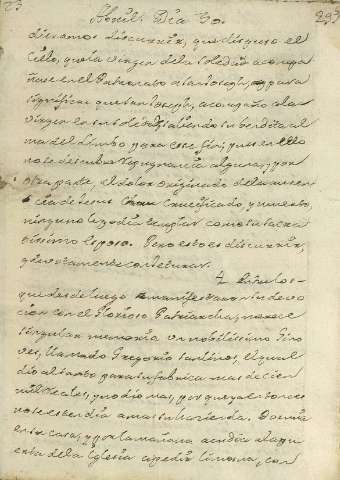 Abril. Dia 30. 293
diesemos discurrir, que dispuso el
Cielo, que la Virgen de la Soledad acompa
ñase en el Patronato a San Joseph, para
significar que San Joseph, acompaño a la
Virgen en su Soledad, saliendo su bendita al
ma del Limbo para ese fin, pues en ello
no se descubre repugnancia alguna, y por
otra parte, el dolor originado de la ausen
cia de Jesus Crucificado, y muerto,
ninguno lo podia templar como su sacra
tissimo Esposo. Pero esto es discurrir,
y devotamente conjeturar.
4 Entre los
que desde luego manifestaron su devo
cion con el Glorioso Patriarcha, merece
singular memoria un nobilissimo
llamado Gregorio el qual
dio al Santo para su fabrica mas de cien
mil reales, y no dio mas, por que ya entonces
no se estendia a mas su hacienda. Dormia
en su casa, y por la mañana acudia a la pu
erta de la Iglesia a pedir limosna, con